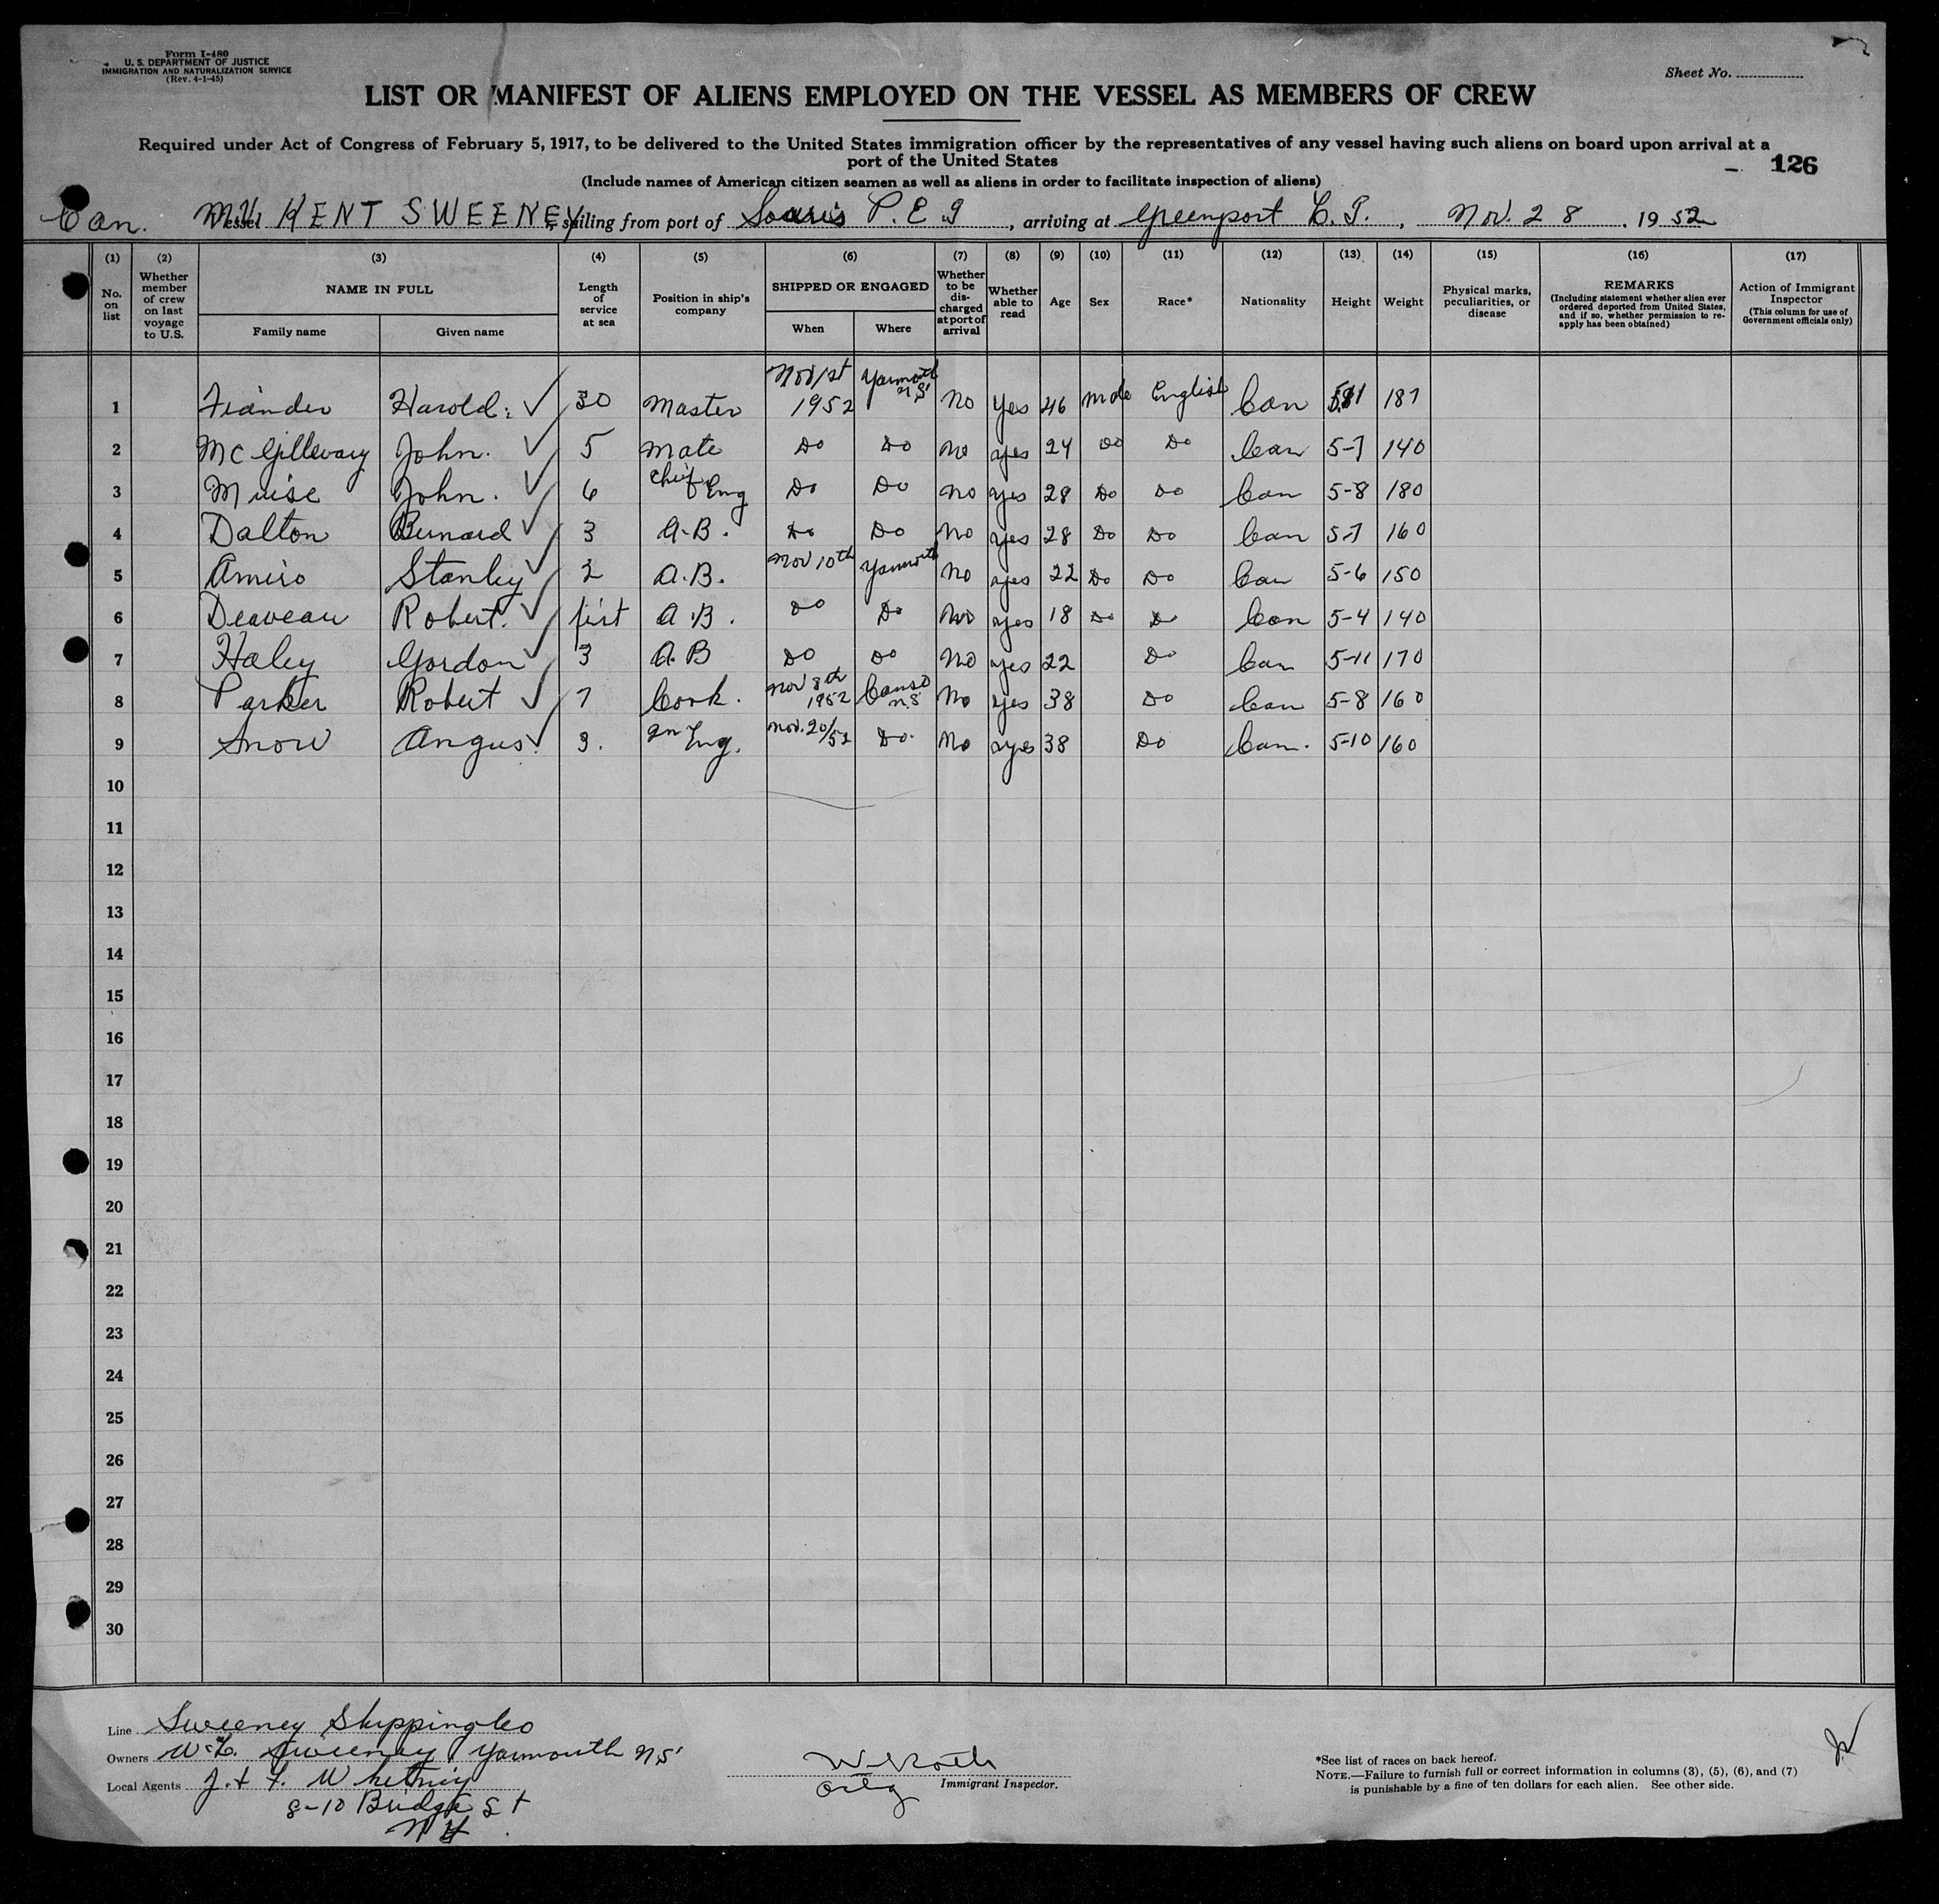 Form I-480
U. S. DEPARTMENT OF JUSTICE
IMMIGRATION AND NATURALIZATION SERVICE
(Rev. 4-1-45)
Sheet No.
LIST OR MANIFEST OF ALIENS EMPLOYED ON THE VESSEL AS MEMBERS OF CREW
Required under Act of Congress of February 5, 1917, to be delivered to the United States immigration officer by the representatives of any vessel having such aliens on board upon arrival at a
port of the United States
126
(Include names of American citizen seamen as well as aliens in order to facilitate inspection of aliens)
Can. Vessel M.V. KENT SWEENEY, sailing from port of Souris P. E. I, arriving at Greenport L. I., Nov. 28, 1952
(1) (2) (3) (4) (5) (6) (7) (8) (9) (10) (11) (12) (13) (14) (15) (16) (17)
No. on list
Whether member of crew on last voyage to U.S.
NAME IN FULL
Family name
Given name
Length of service at sea
Position in ship's company
SHIPPED OR ENGAGED
When
Where
Whether to be discharged at port of arrival
Whether able to read
Age
Sex
Race*
Nationality
Height
Weight
Physical marks, peculiarities, or disease
REMARKS
(Including statement whether alien ever ordered deported from United States, and if so, whether permission to reapply has been obtained)
Action of Immigrant Inspector
(This column for use of Government officials only)
1 Fiander Harold. 30 Master Nov 1st 1952 Yarmouth N S No Yes 46 Male English Can 187
2 McGillevary John. 5 Mate Do Do No yes 24 Do Do Can 5-7 140
3 Muise John. 6 Chief Eng Do Do No yes 28 Do Do Can 5-8 180
4 Dalton Bernard 3 A.B. Do Do No yes 28 Do Do Can 5-7 160
5 Amiro Stanley 2 A.B. Nov 10th Yarmouth No yes 22 Do Do Can 5-6 150
6 Deaveau Robert. first A.B. Do Do No yes 18 Do Do Can 5-4 140
7 Haley Gordon 3 A.B Do Do No yes 22 Do Can 5-11 170
8 Parker Robert 7 Cook. Nov 8th 1952 Canso N.S No yes 38 Do Can 5-8 160
9 Snow Angus. 3. 2n Eng. Nov. 20/52 Do. No yes 38 Do Can. 5-10 160
10
11
12
13
14
15
16
17
18
19
20
21
22
23
24
25
26
27
28
29
30
Line Sweeney Shipping Co
Owners Sweeney Yarmouth N S
Local Agents J. & F. Whitney
8-10 Bridge St
N Y.
Immigrant Inspector.
*See list of races on back hereof.
NOTE.—Failure to furnish full or correct information in columns (3), (5), (6), and (7)
is punishable by a fine of ten dollars for each alien. See other side.